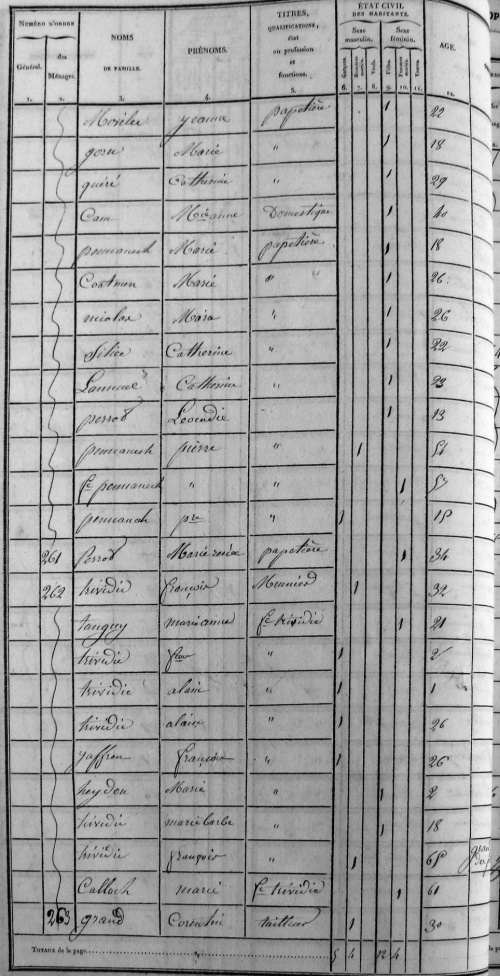 NUMÉRO D'ORDRE
Général.
des Ménages.
NOMS DE FAMILLE.
PRÉNOMS.
TITRES, QUALIFICATIONS, état ou profession et fonctions.
ÉTAT CIVIL DES HABITANTS.
Sexe masculin.
Sexe féminin.
Garçons.
Hommes mariés.
Veufs.
Filles.
Femmes mariées.
Veuves.
AGE.
1. 2. 3. 4. 5. 6. 7. 8. 9. 10. 11. 12.
yeanne papetière 1 22
Marie " 1 18
quéré Catherine " 1 29
Cam Marianne Domestique 1 40
pennanech Marie papetière 1 18
Coatmen Marie " 1 26
nicolas Maria " 1 26
Catherine " 1 22
Catherine " 1 23
perrot 1 13
pennanech pierre " 1
fe pennanech " " 1
pennanech pre " 1
261 Perrot Marie papetière 1 34
262 trividic françois Meunier 1 32
tanguy marie anne fe trividic 1 21
trividic " 1 2
trividic alain " 1 1
trividic alain " 1 26
françois " 1 26
Marie " 1 2
trividic marie barbe " 1 18
trividic françois " 1
Calloch marie fe trividic 1 61
263 grand Corentin tailleur 1 30
TOTAUX de la page 5 4 12 4